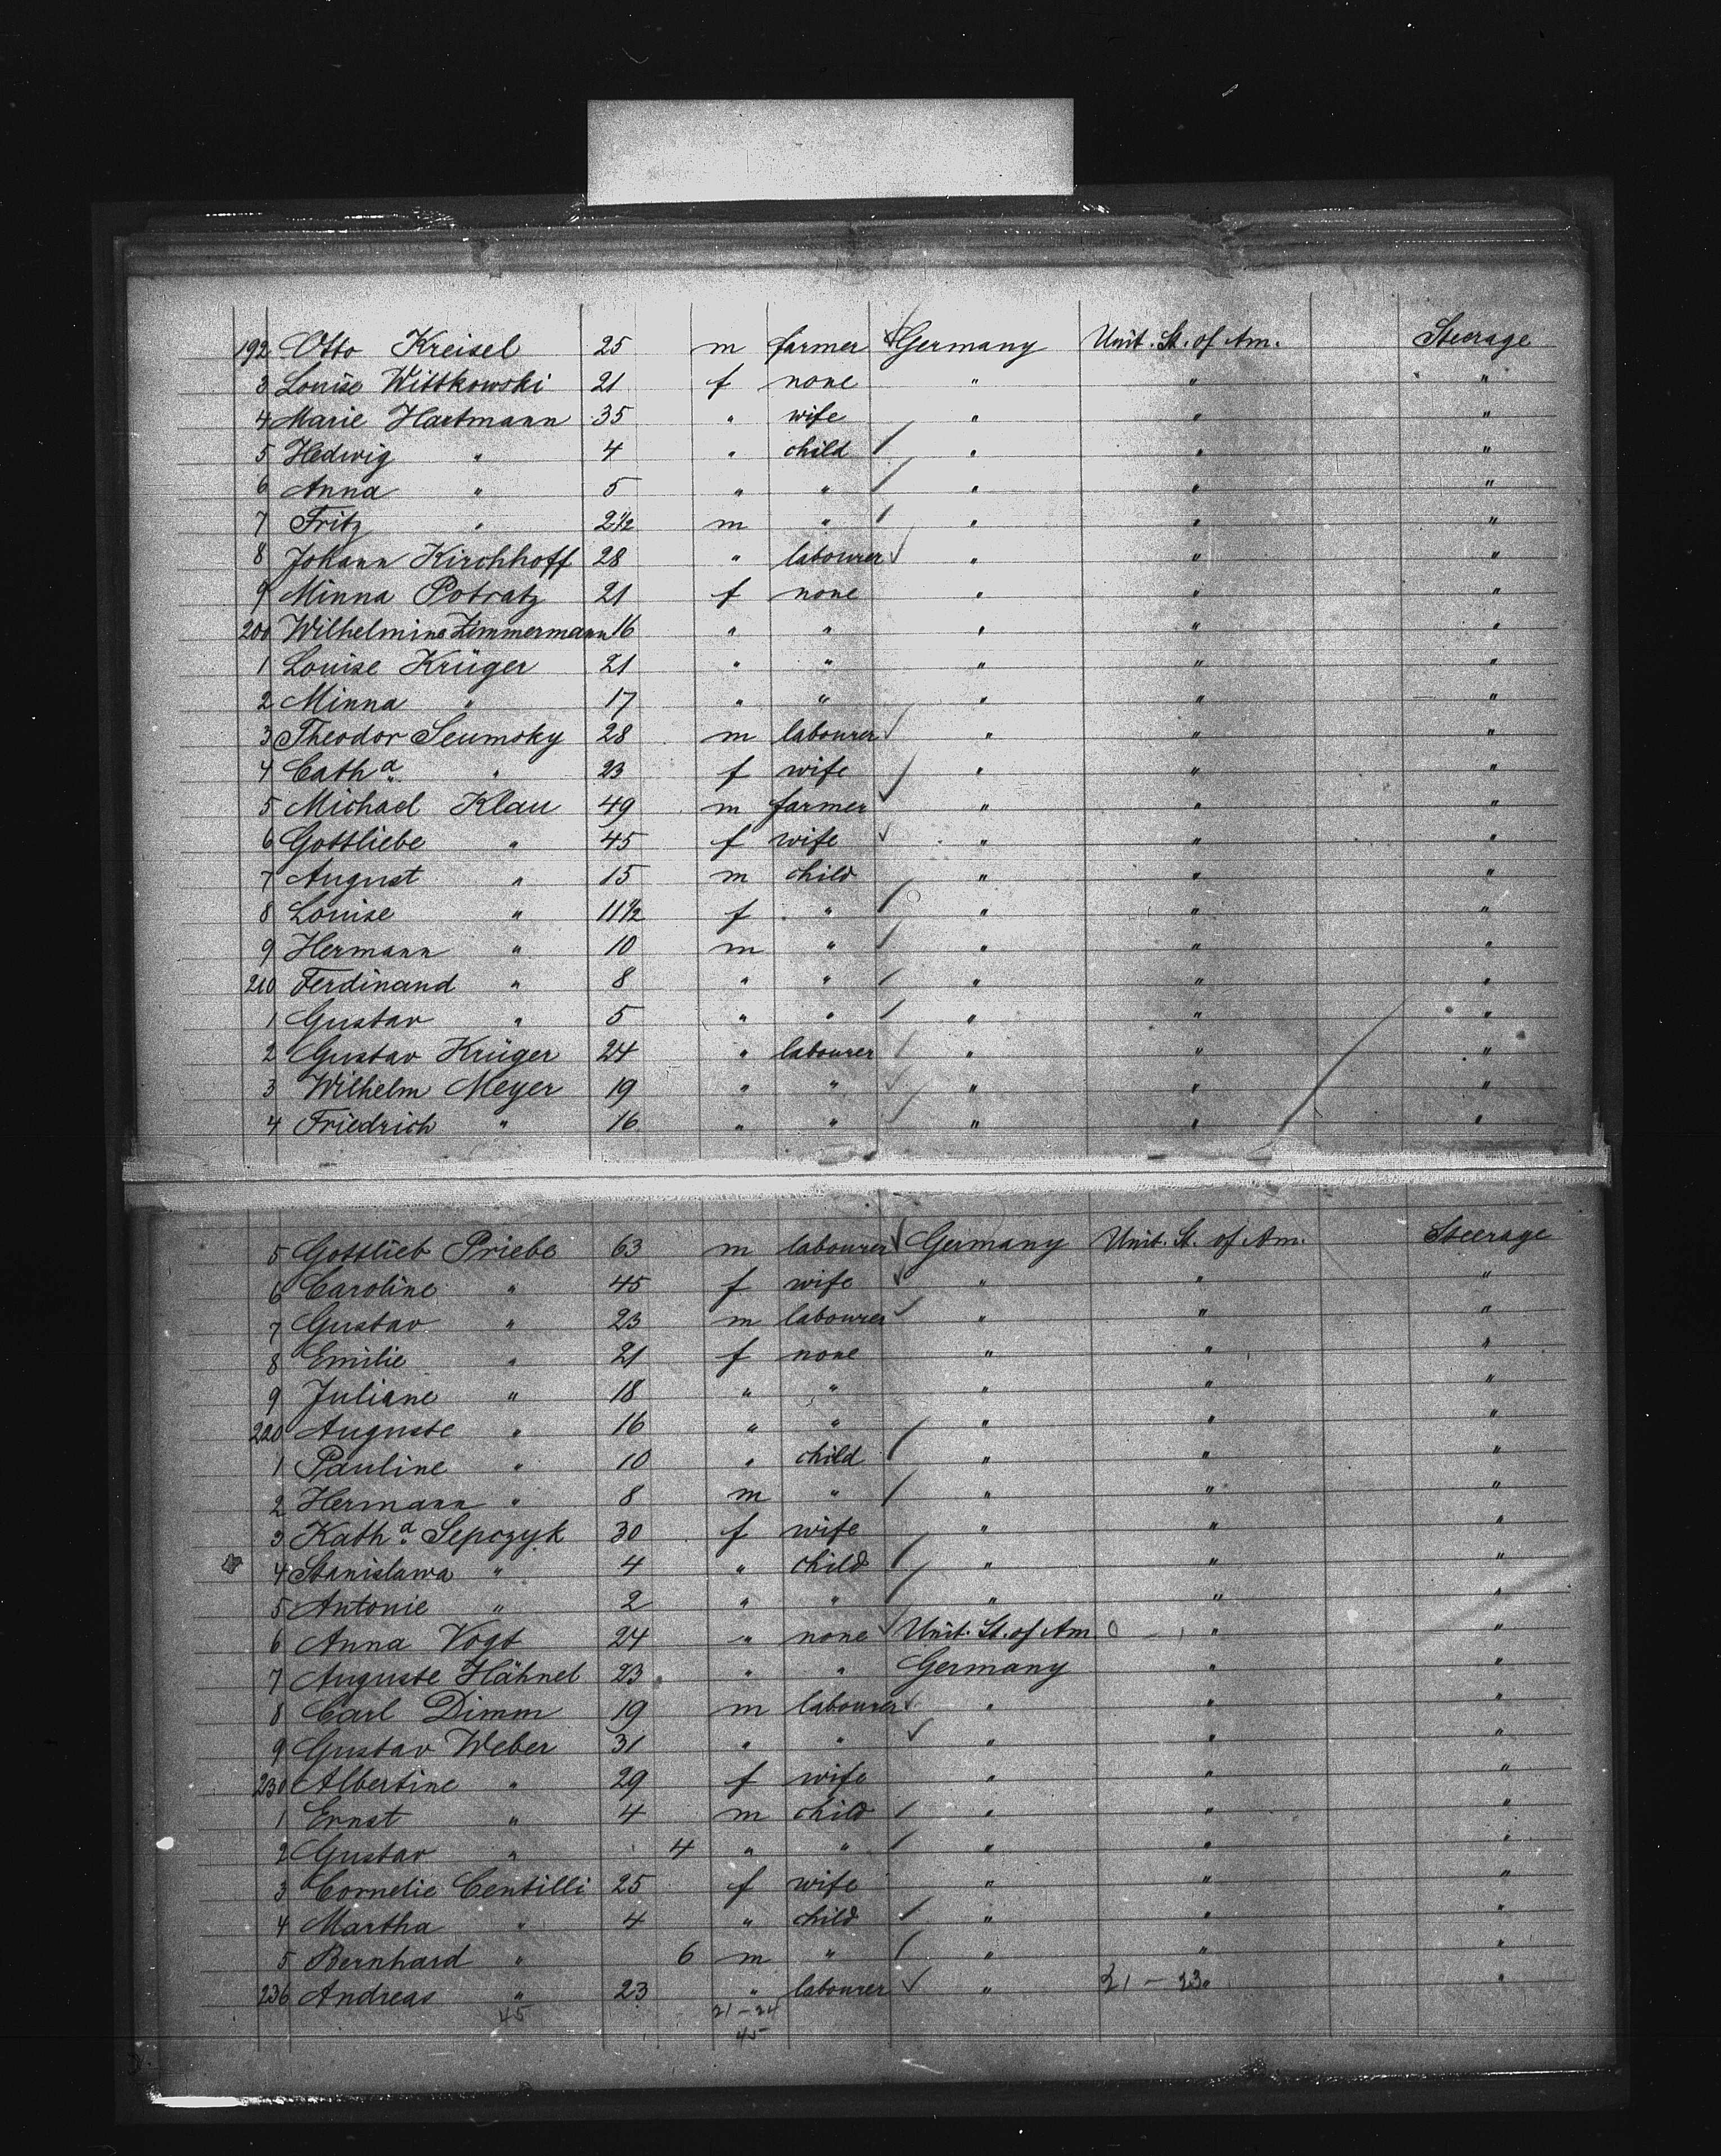 192 Otto Kreisel 25 m farmer Germany Unit. St. of Am. Steerage
3 Louise Wittkowski 21 f none " " "
4 Marie Hartmann 35 " wife " " "
5 Hedwig " 4 " child " " "
6 Anna " 5 " " " " "
7 Fritz " 2½ m " " " "
8 Johann Kirchhoff 28 " labourer " " "
9 Minna Potratz 21 f none " " "
200 Wilhelmine Zimmermann 16 " " " " "
1 Louise Krüger 21 " " " " "
2 Minna " 17 " " " " "
3 Theodor Seumsky 28 m labourer " " "
4 Catha " 23 f wife " " "
5 Michael Klau 49 m farmer " " "
6 Gottliebe " 45 f wife " " "
7 August " 15 m child " " "
8 Louise " 11½ f " " " "
9 Hermann " 10 m " " " "
210 Ferdinand " 8 " " " " "
1 Gustav " 5 " " " " "
2 Gustav Krüger 24 " labourer " " "
3 Wilhelm Meyer 19 " " " " "
4 Friedrich " 16 " " " " "
5 Gottlieb Priebe 63 m labourer Germany Unit. St. of Am. Steerage
6 Caroline " 45 f wife " " "
7 Gustav " 23 m labourer " " "
8 Emilie " 21 f none " " "
9 Juliane " 18 " " " " "
220 Auguste " 16 " " " " "
1 Pauline " 10 " child " " "
2 Hermann " 8 m " " " "
3 Katha Sepczyk 30 f wife " " "
4 Stanislawa " 4 " child " " "
5 Antonie " 2 " " " " "
6 Anna Vogt 24 " none Unit. St. of Am. " "
7 Auguste Hähnel 23 " " Germany " "
8 Carl Dimm 19 m labourer " " "
9 Gustav Weber 31 " " " " "
230 Albertine " 29 f wife " " "
1 Ernst " 4 m child " " "
2 Gustav " 4 " " " " "
3 Cornelie Centilli 25 f wife " " "
4 Martha " 4 " child " " "
5 Bernhard " 6 m " " " "
236 Andreas " 23 " labourer " 21 - 23 "
45 21-24
45